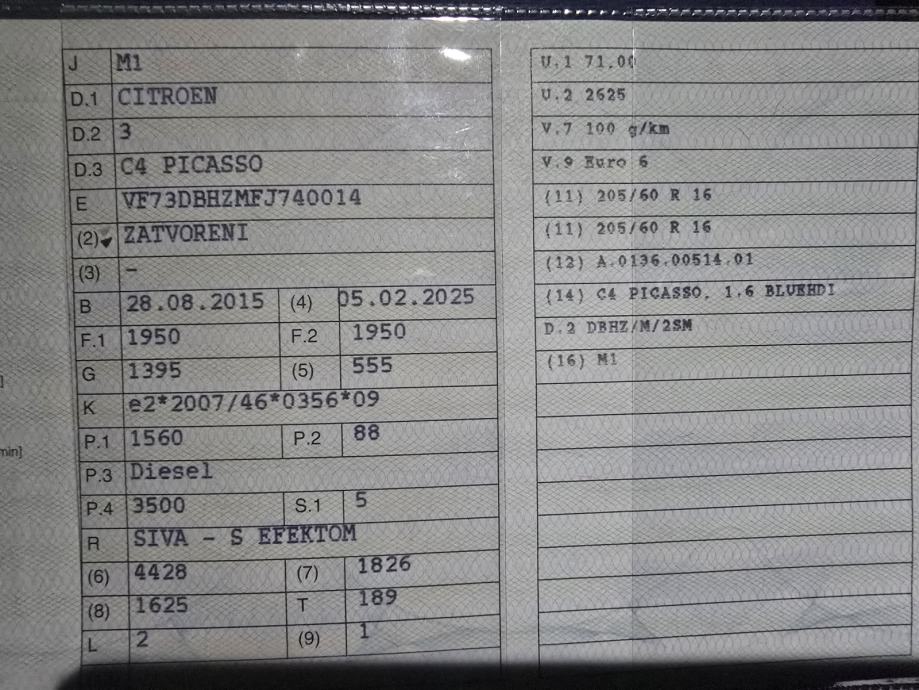 J M1
D.1 CITROEN
D.2 3
D.3 C4 PICASSO
E VF73DBHZMFJ740014
(2) ZATVORENI
(3) –
B 28.08.2015 (4) 05.02.2025
F.1 1950 F.2 1950
G 1395 (5) 555
K e2*2007/46*0356*09
P.1 1560 P.2 88
P.3 Diesel
P.4 3500 S.1 5
R SIVA – S EFEKTOM
(6) 4428 (7) 1826
(8) 1625 T 189
L 2 (9) 1
U.1 71.00
U.2 2625
V.7 100 g/km
V.9 Euro 6
(11) 205/60 R 16
(11) 205/60 R 16
(12) A.0136.00514.01
(14) C4 PICASSO, 1.6 BLUEHDI
D.2 DBHZ/M/2SM
(16) M1
]
min]